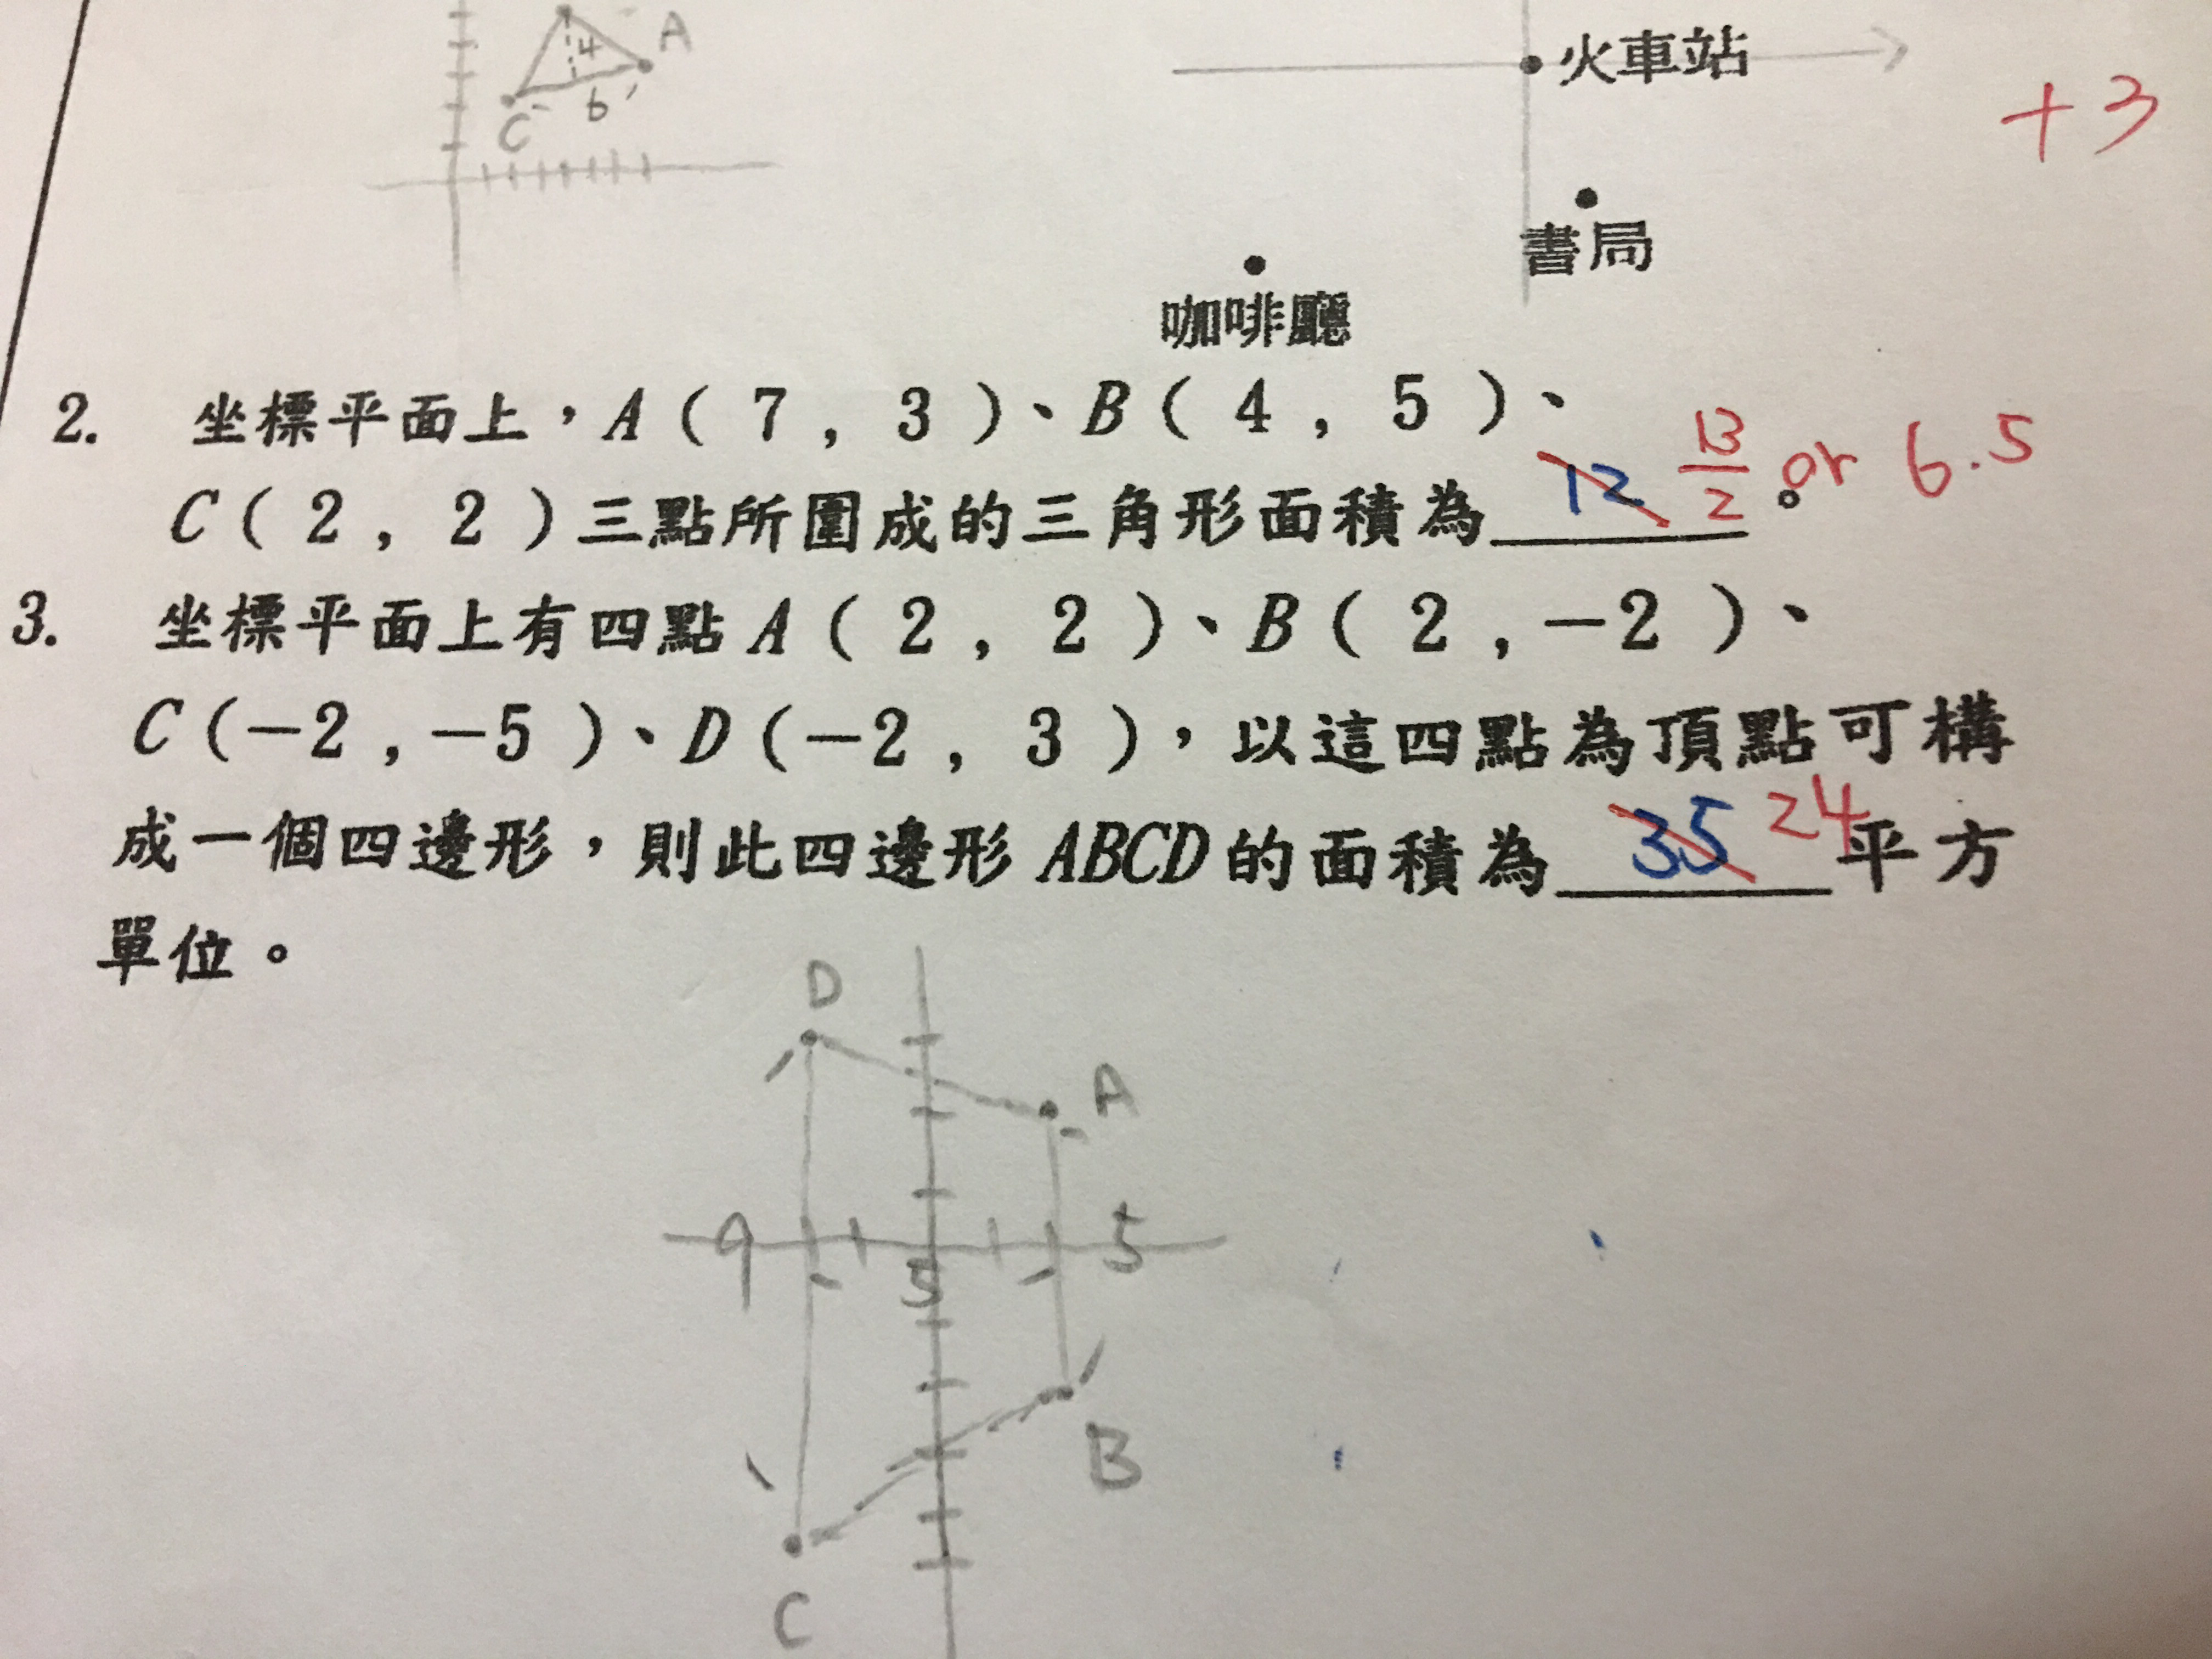 4
A
6
C
火車站
+3
書局
咖啡廳
2. 坐標平面上，A（7，3）、B（4，5）、
C（2，2）三點所圍成的三角形面積為 12 13/2 。 or 6.5
3. 坐標平面上有四點A（2，2）、B（2，−2）、
C（−2，−5）、D（−2，3），以這四點為頂點可構
成一個四邊形，則此四邊形ABCD的面積為 35 24 平方
單位。
D
A
9 5 5
B
C